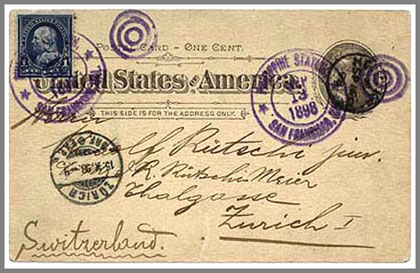 POSTAL CARD – ONE CENT.
United States of America
THIS SIDE IS FOR THE ADDRESS ONLY.
SAN FRANCISCO
PHILIPPINE STATION
1898
SAN FRANCISCO,
ZÜRICH
Herrn
Rudolf Rütschi jun.
R. Rütschi-Meier
Thalgasse
Zurich I
Switzerland.